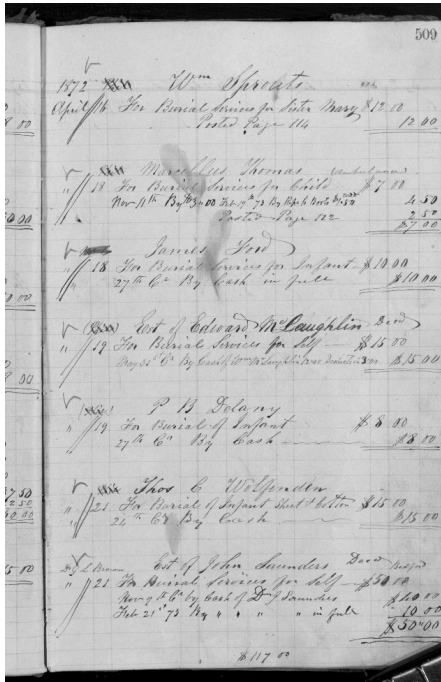 509
1872 Wm Sprouts
April 16 For Burial Services for Sister Mary $12 00
Posted Page 114 12 00
Marcellus Thomas
" 18 For Burial Services for Child $7 00
Nov 11th By 4 50
Posted Page 122 2 50
$7 00
James Ford
" 18 For Burial Services for Infant $10 00
27th Cr By Cash in full $10 00
Est of Edward McLaughlin Decd
" 19 For Burial Services for Self $15 00
May 31st Cr By Cash of Wm McLaughlin $15 00
P B Delany
" 19 For Burial of Infant $8 00
27th Cr By Cash $8 00
Thos C Wolfenden
" 21 For Burial of Infant Street & Cotton $15 00
" 24th Cr By Cash $15 00
Est of John Saunders Decd
" 21 For Burial Services for Self $50 00
Nov 9th Cr by Cash of Dr J Saunders $40 00
Feb 21st 73 By " " " " in full 10 00
$50 00
$117 00